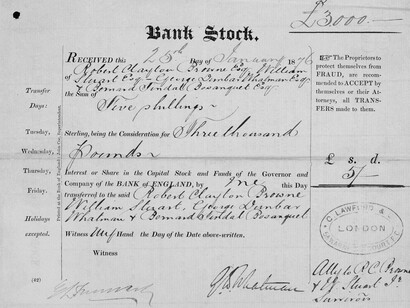 £3,000.-
Bank Stock.
RECEIVED this 25th Day of January 1876
of Robert Clayton Browne Esq William
Stuart Esq George Dunbar Whatman Esq
& Bernard Tindal Bosanquet Esq
the Sum of
Five shillings
Sterling, being the Consideration for Three thousand
Pounds
Interest or Share in the Capital Stock and Funds of the Governor and
Company of the BANK of ENGLAND, by me this Day
transferred to the said Robert Clayton Browne
William Stuart, George Dunbar
Whatman & Bernard Tindal Bosanquet
Witness my Hand the Day of the Date above-written.
Witness
Transfer
Days:
Tuesday,
Wednesday,
Thursday,
Friday.
Holidays
excepted.
(42)
☞ The Proprietors
to protect themselves from
FRAUD, are recom-
mended to ACCEPT by
themselves or their At-
torneys, all TRANS-
FERS made to them.
£ s. d.
5/-
C. LAWFORD &
LONDON
Atty to R C Browne
& W Stuart Jr